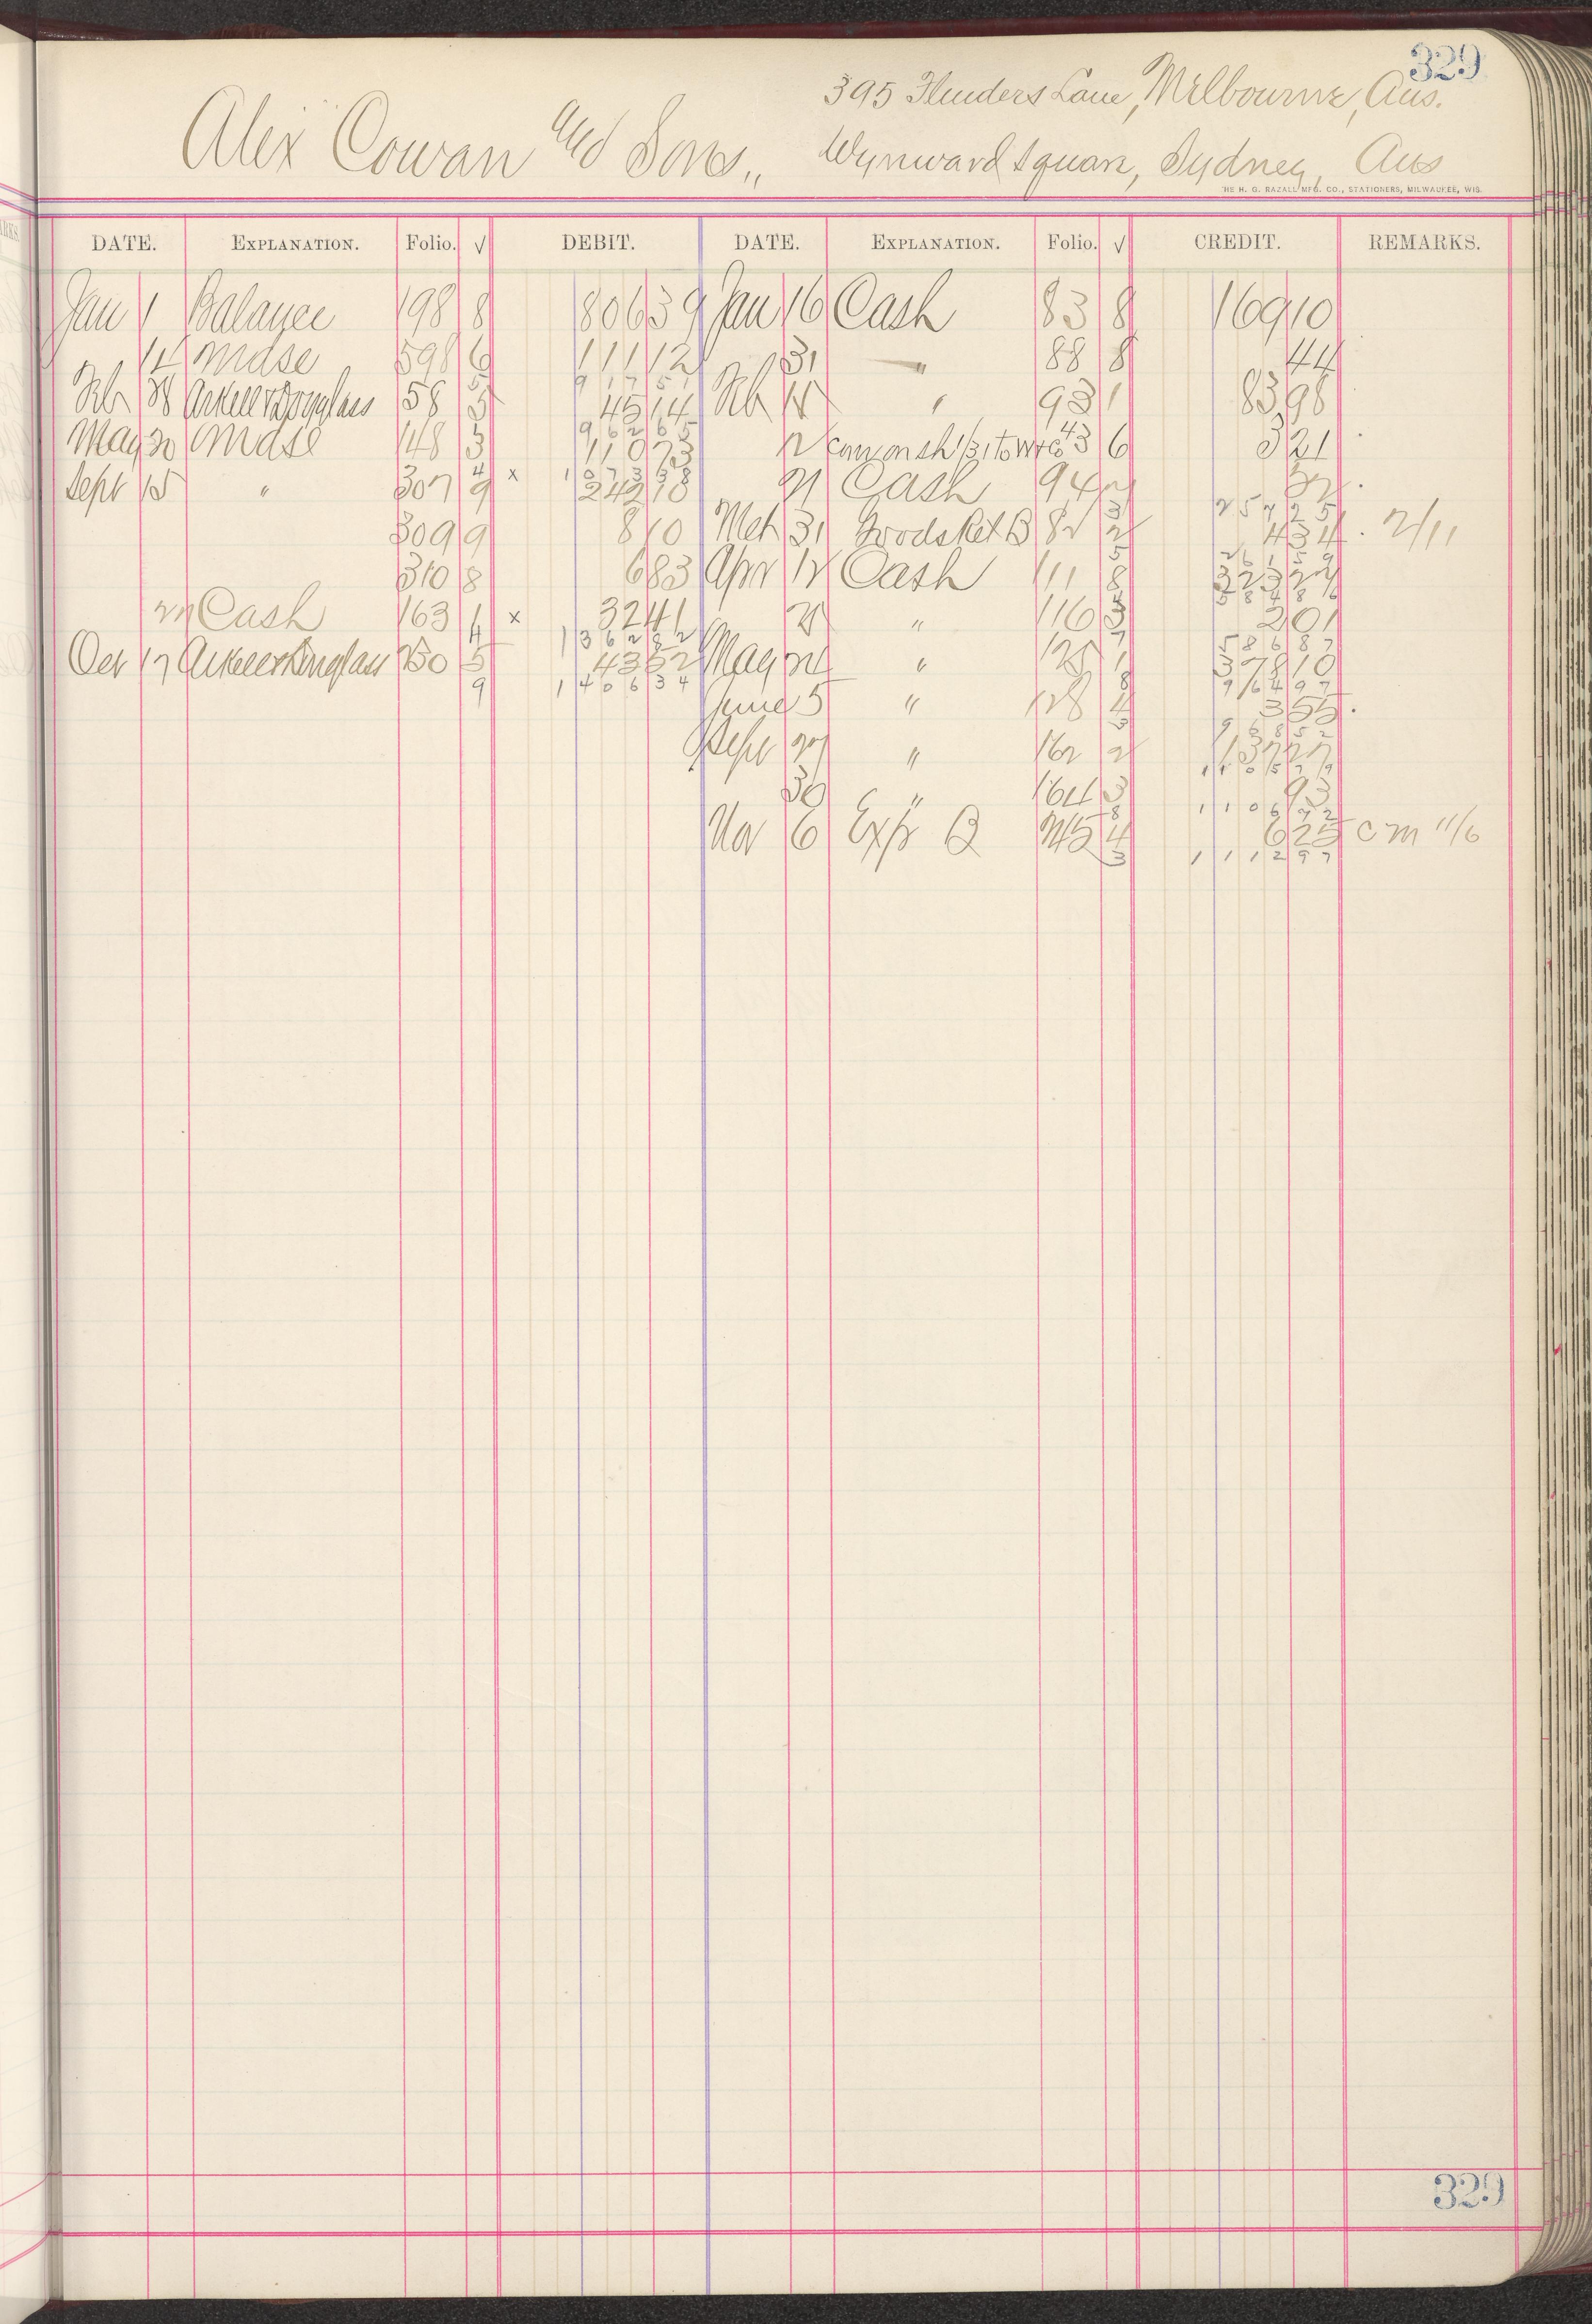 329
395 Flinders Lane, Melbourne, Aus.
Alex Cowan and Sons,, Wynward Square, Sydney, Aus
THE H. G. RAZALL MFG. CO., STATIONERS, MILWAUKEE, WIS.
DATE. EXPLANATION. Folio. √ DEBIT. DATE. EXPLANATION. Folio. √ CREDIT. REMARKS.
Jan 1 Balance 198 8 806 39 Jan 16 Cash 83 8 169 10
14 Mdse 598 6 111 12 31 " 88 8 44
917 51
Feb 28 Arkell & Douglass 58 5 45 14 Feb 14 " 93 1 83 98
962 65
May 20 Mdse 148 3 110 73 12 43 6 3 21
1073 38
Sept 15 " 307 9 x 242 18 21 Cash 94
257 25
309 9 8 10 Mch 31 82 2 4 34 2/11
261 59
310 8 6 83 Apr 12 Cash 111 8
Cash 163 1 x 32 41 21 " 116 3 2 01
1362 82 586 87
Oct 17 Arkell & Douglass 250 5 43 52 May " 1 378 10
9 1406 34 964 97
June 5 " 128 4 3 55
968 52
Sept 27 " 162 2 137 27
1105 79
30 " 164 3 93
1106 72
Nov 6 Exp B 4 6 25 CM 11/6
1112 97
329